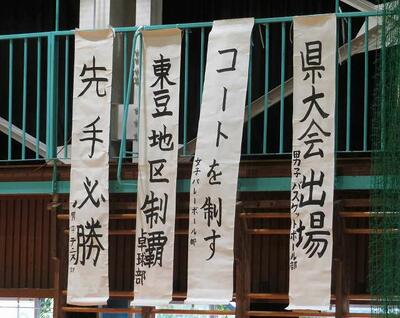 県大会出場
男子バスケットボール部
コートを制す
女子バレーボール部
東豆地区制覇
卓球部
先手必勝
男子テニス部